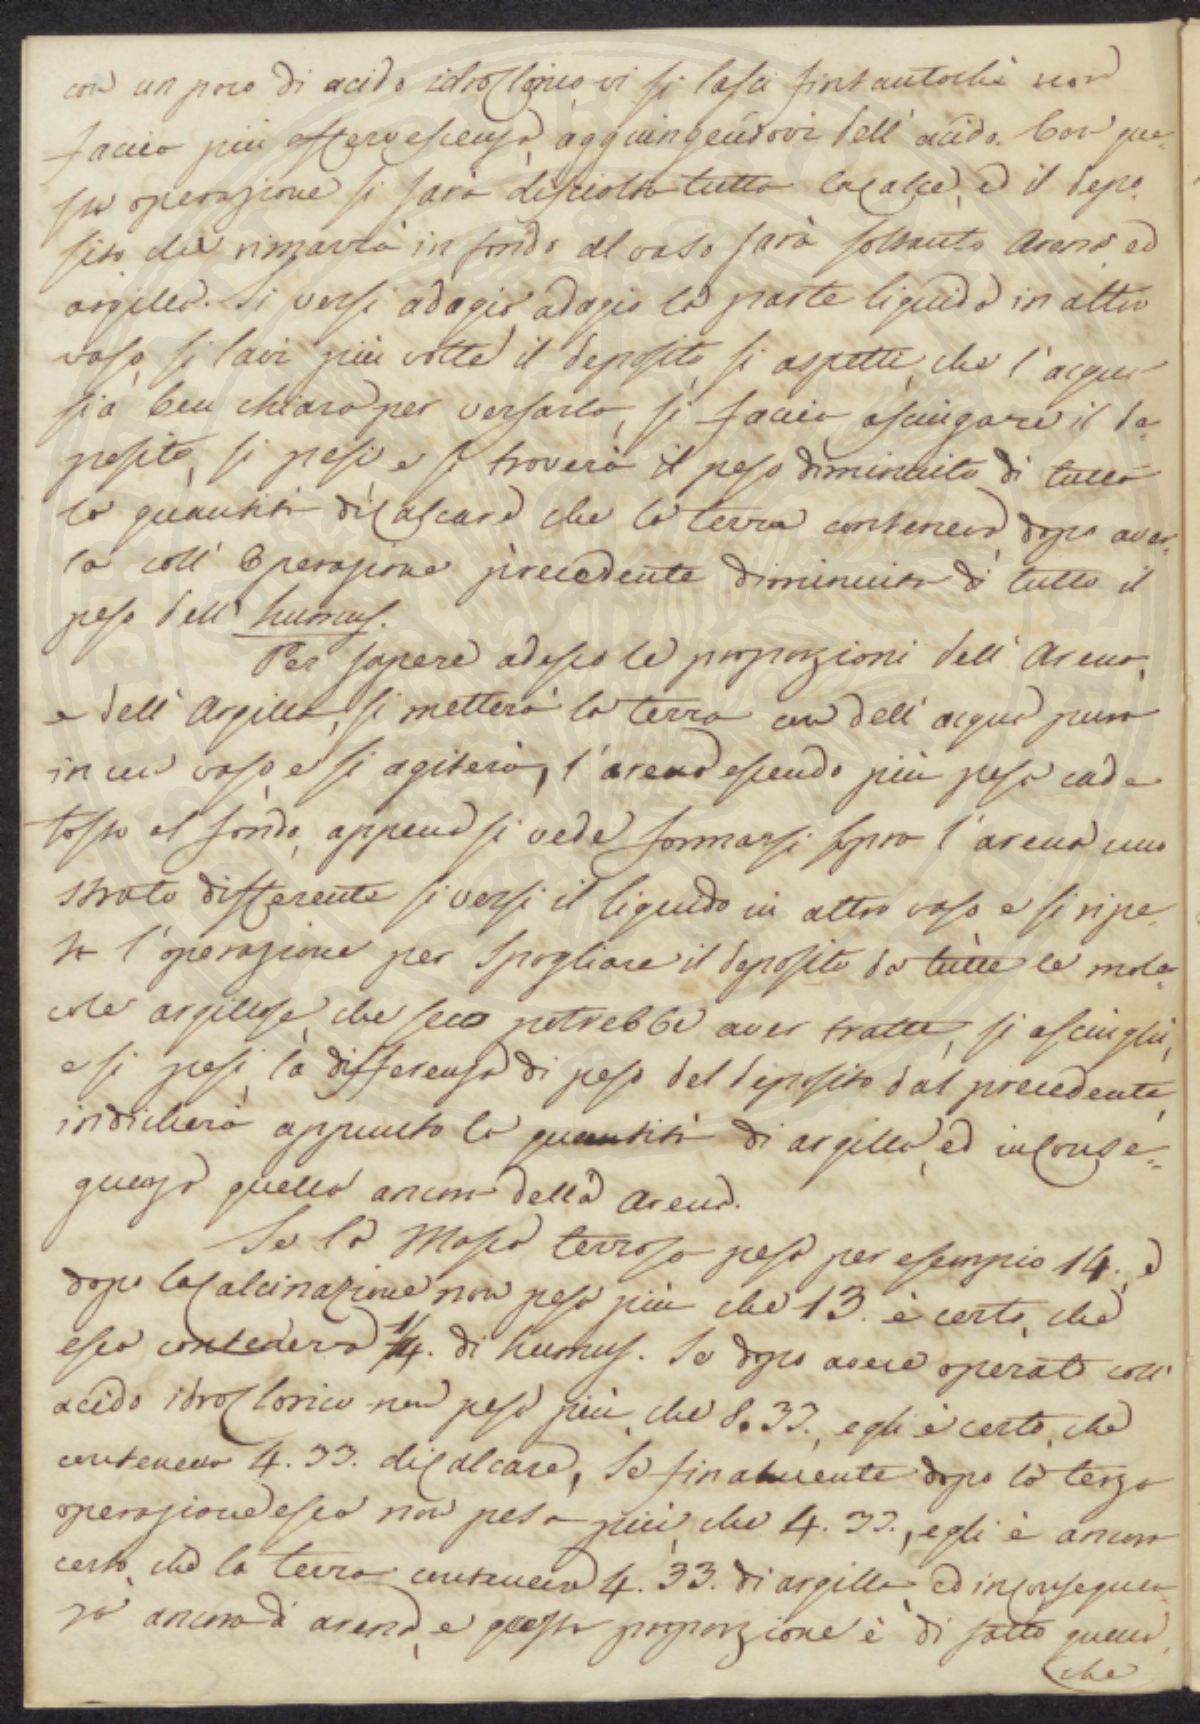 con un poco di acido idroclorico, vi si lasci fintantochè non
faccia più effervescenza, aggiungendovi dell' acido. Con que=
sta operazione si sarà disciolta tutta la calce, ed il depo=
sito che rimarrà in fondo al vaso sarà soltanto Arena, ed
argilla. Si versi adagio adagio la parte liquida in altro
vaso, si lavi più volte il deposito, si aspetti, che l' acqua
sia ben chiara per versarla, si faccia asciugare il de=
posito, si pesi, e si troverà il peso diminuito di tutta
la quantità di Calcare che la terra conteneva dopo aver=
la coll' Operazione precedente diminuita di tutto il
peso dell' humus.
Per sapere adesso le proporzioni dell' Arena,
e dell' Argilla, si metterà la terra con dell' acqua pura
in un vaso, e si agiterà, l' arena essendo più pesa cade
tosto al fondo, appena si vede formarsi sopra l' arena uno
strato differente si versi il liquido in altro vaso e si ripe=
ta l' operazione per Spogliare il deposito da tutte le mole=
cole argillose, che seco potrebbe aver tratte, si asciughi,
e si pesi, la differenza di peso del deposito dal precedente,
indicherà appunto la quantità di argilla, ed in Conse=
guenza quella ancora della Arena.
Se la Massa terrosa pesa per esempio 14., e
dopo la Calcinazione non pesa più che 13. è certo, che
essa conteneva 1/14. di humus. Se dopo avere operato coll'
acido idroclorico non pesa più, che 8.33., egli è certo, che
conteneva 4.33. di Calcare, Se finalmente dopo la terza
operazione essa non pesa più, che 4.33., egli è ancora
certo, che la terra conteneva 4.33. di argilla, ed in Conseguen=
za ancora di arena, e questa proporzione è di fatto quella,
che